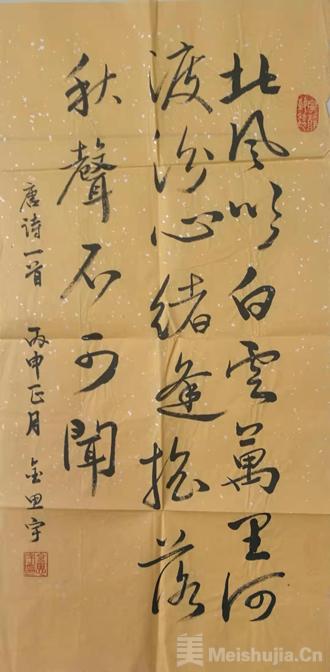 北风吹白雲萬里河
渡汾心緒逢摇落
秋聲不可聞
唐诗一首 丙申正月 金思宇
美 Meishujia.Cn